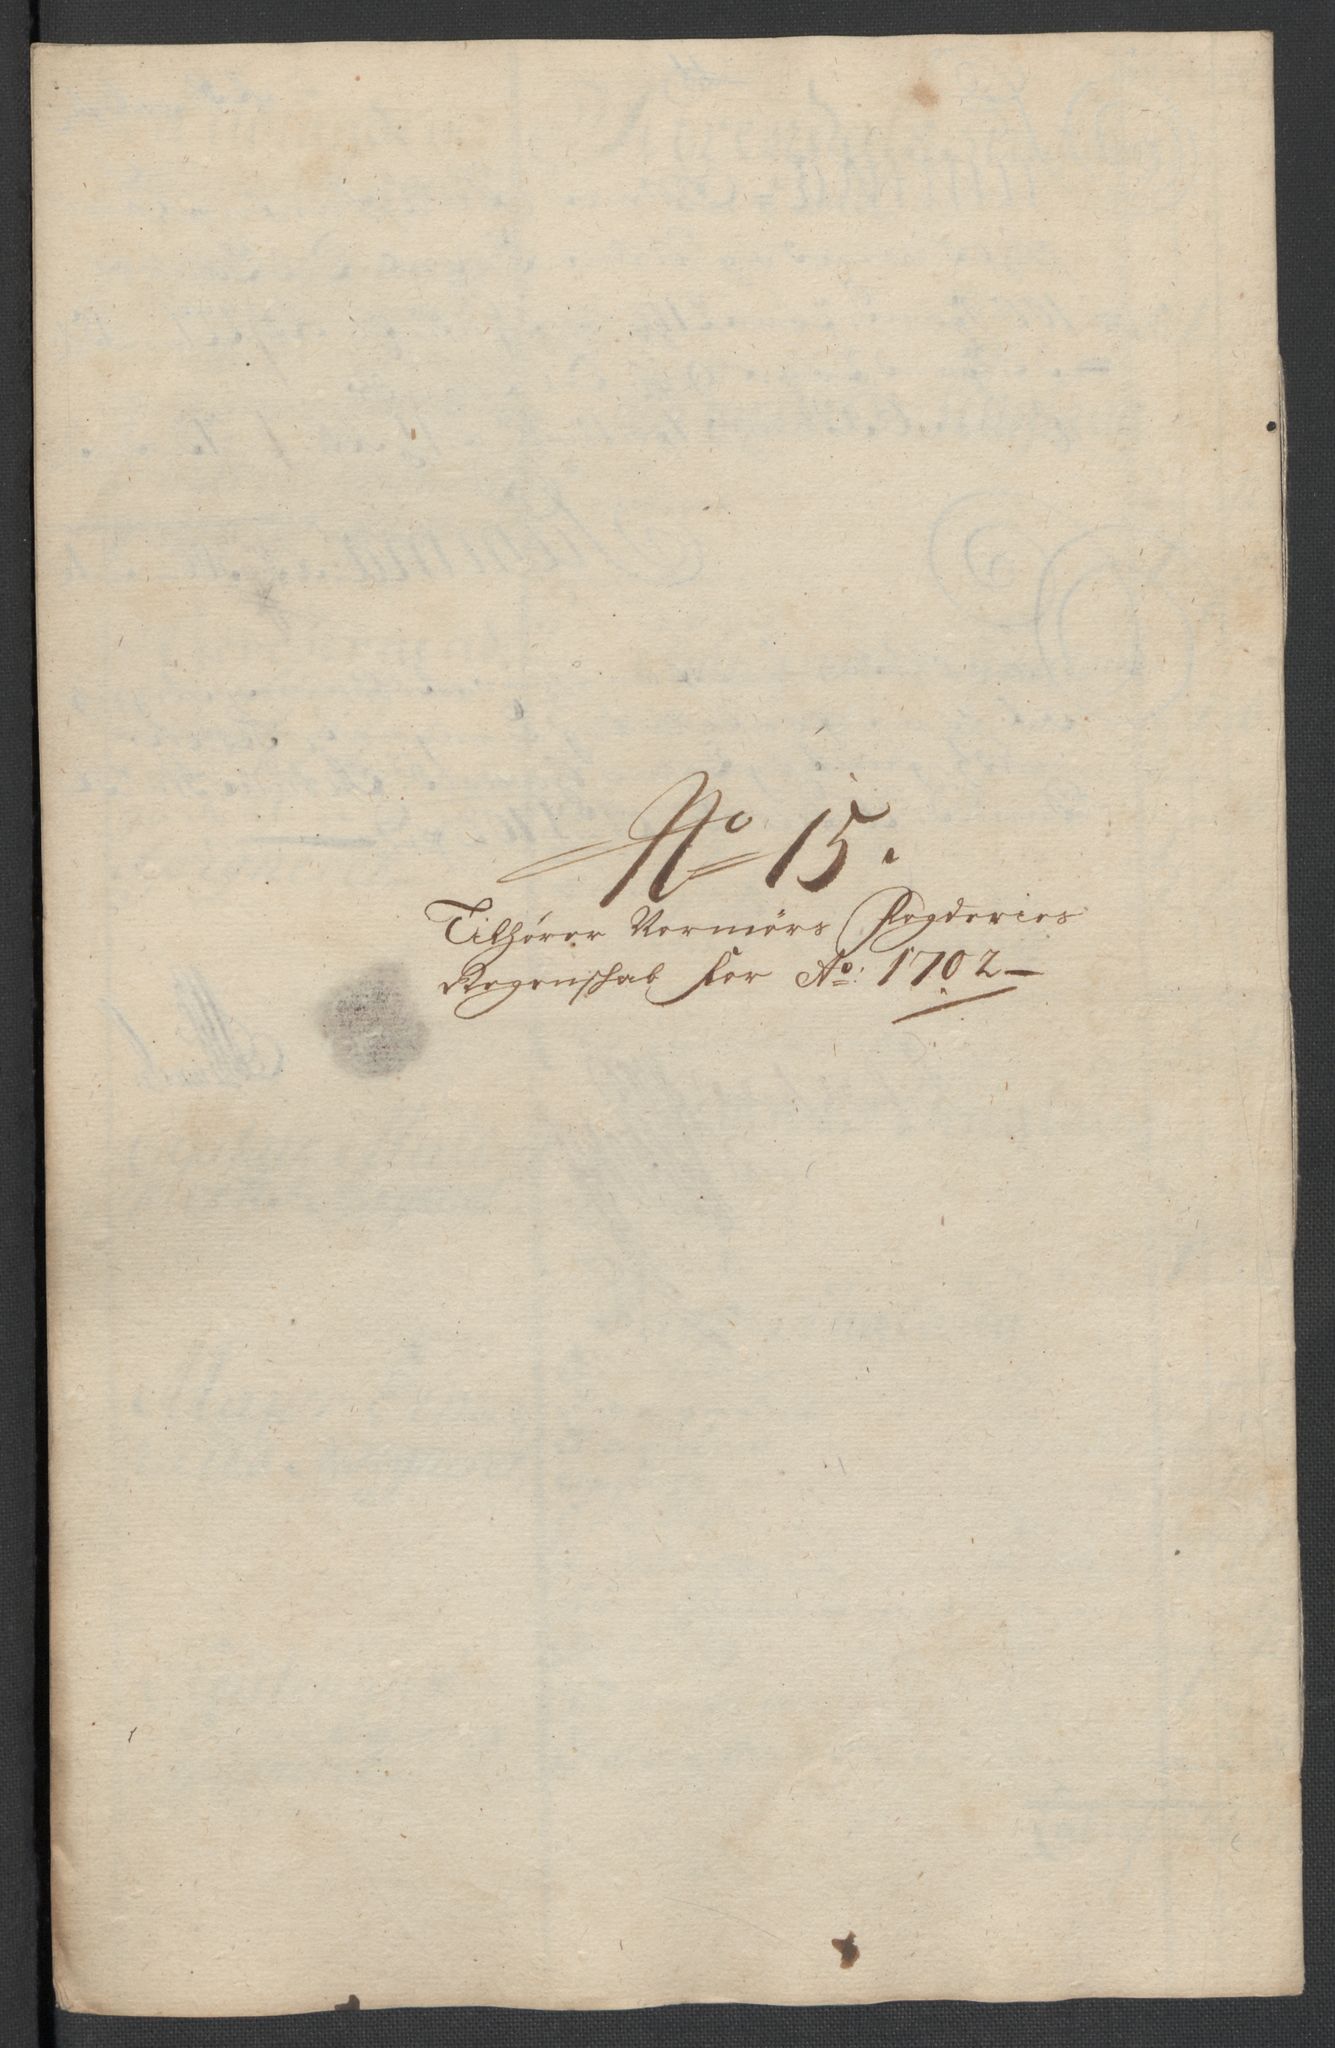 No 15.
Tilhører Normørs Fogderies
Regenskab for Ao: 1702